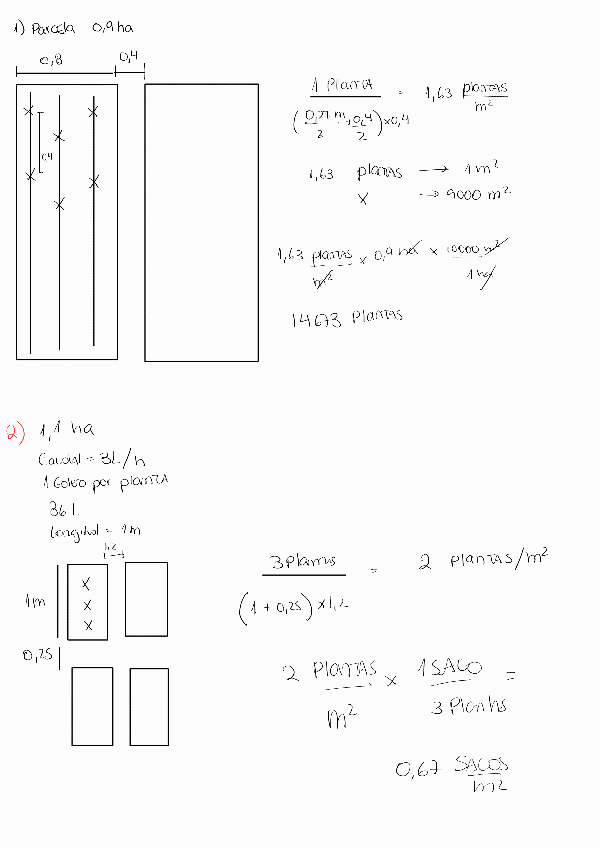 1) Parcela 0,9 ha
0,8 0,4
0,4
1 Planta = 1,63 plantas
m²
2 2
1,63 plantas → 1 m²
X → 9000 m²
1,63 plantas x 0,9 ha x 10000 m²
m² 1 ha
14673 Plantas
2) 1,1 ha
Caudal = 3L/h
1 Gotero por planta
36 L
Longitud = 1m
1m
0,25
3 Plantas = 2 plantas/m²
(1 + 0,25) x 1,2
2 Plantas x 1 SACO =
m² 3 Plantas
0,67 SACOS
m²